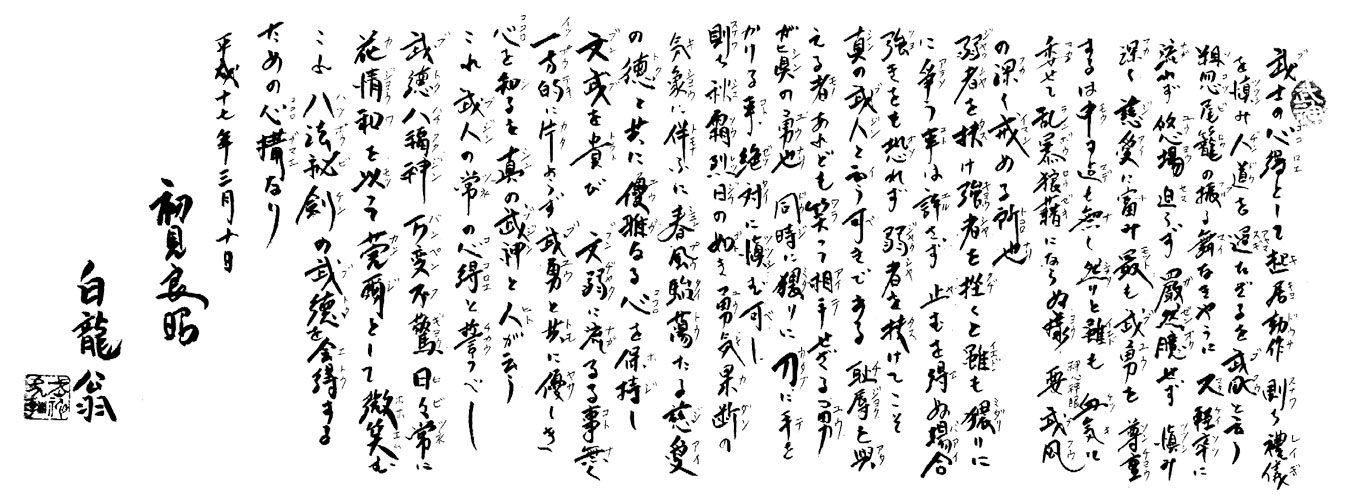 武士の心得として起居動作則ち禮儀
を慎み人道を過たざるを武風と云う
粗忽尾籠の振る舞なきやうに又軽卒に
流れず悠揚迫らず嚴然臆せず慎み
深く慈愛に富み最も武勇を尊重
するは申す迄も無し然りと雖も血気に
委せて乱暴狼藉にならぬ様要武風
の深く戒める所也
弱者を扶け強者を挫くと雖も猥りに
に争う事は許さず止むを得ぬ場合
強きをも恐れず弱者を扶けてこそ
真の武人と云う可きである恥辱を與
える者あれども笑って相手せざる勇
が真の勇也同時に猥りに刀に手を
かける事絶対に慎む可し
則ち秋霜烈日の如き勇気果断の
気象に伴ふに春風駘蕩たる慈愛
の徳と共に優雅なる心を保持し
文武を貴び文弱に流るる事無く
一方的に片よらず武勇と共に優しき
心を知るを真の武神と人が云う
これ武人の常の心得と誓うべし
武徳八稱神万変不驚日々常に
花情和を以って莞爾として微笑む
これ八法秘剣の武徳を会得する
ための心構なり
平成十七年三月十日
初見良昭
白龍翁